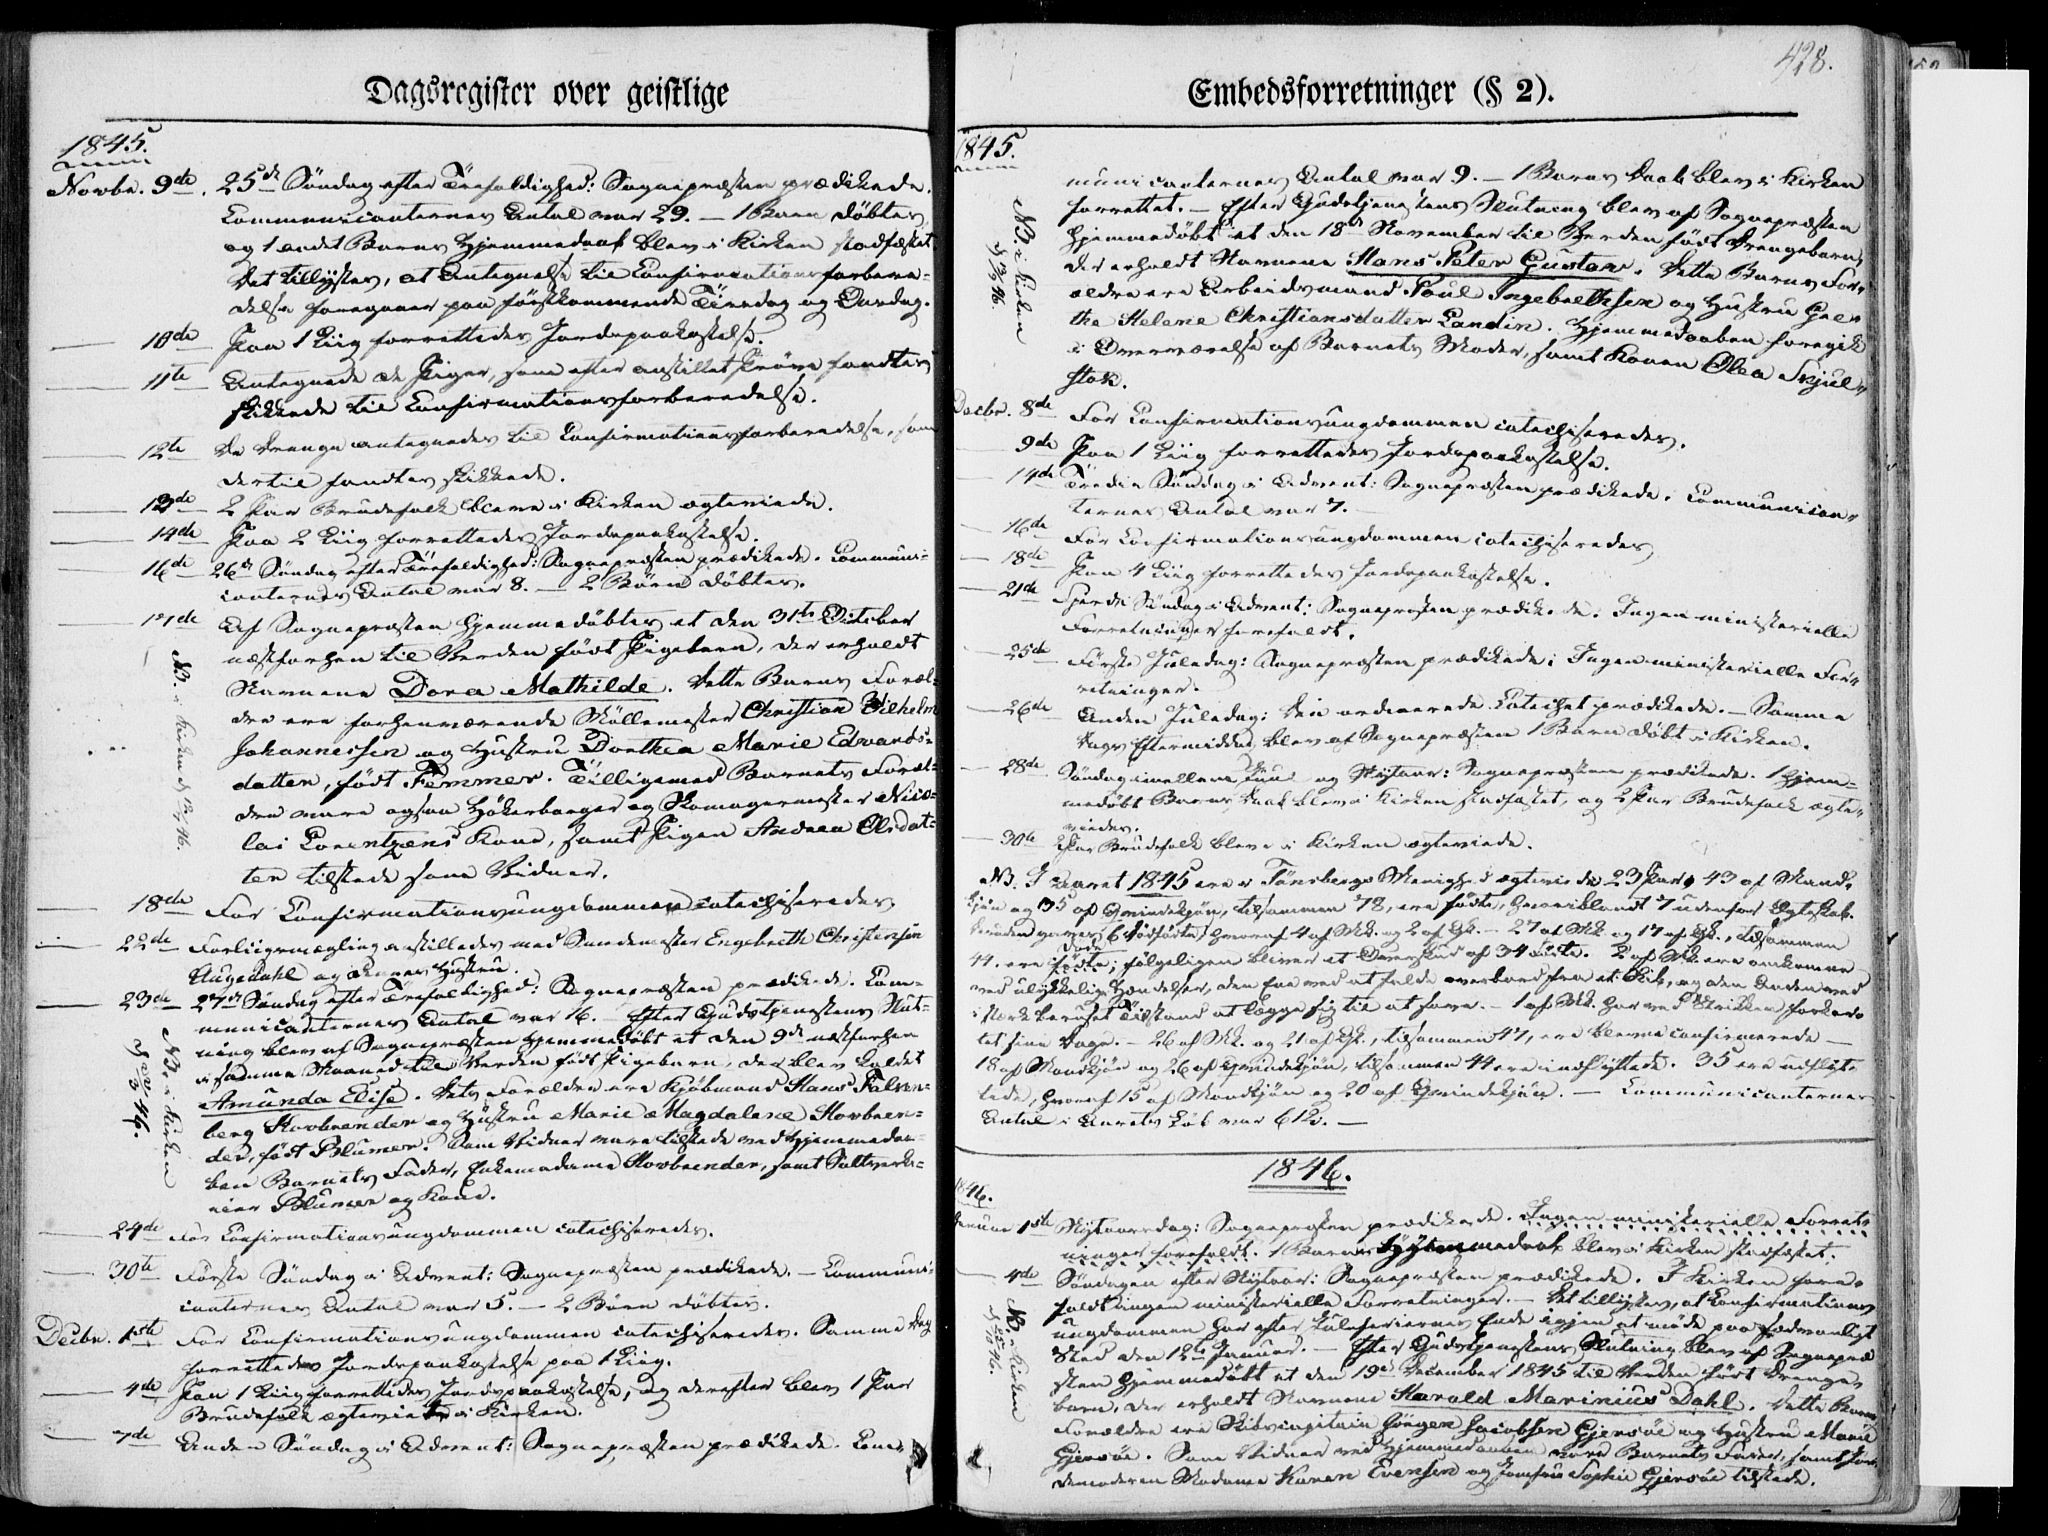 Dagsregister over geistlige
1845.
Novbr. 9de. 25de Søndag efter Trefoldighed: Sognepræsten prædikede.
Communicanternes Antal var 29. – 1 Barn døbtes
og 1 andt Barns Hjemmedaab blev i Kirken stadfæstet.
Det tillystes, at Antegnelse til Confirmationsforbere-
delse foregaaer paa førstkommende Tirsdag og Onsdag.
10de Paa 1 Liig forrettedes Jordspaakastelse.
11te Antegnede de Piger, som efter anstillet Prøve fandtes
skikkede til Confirmationsforberedelse.
12te De Drenge antegnedes til Confirmationsforberedelse, som
dertil fandtes skikkede.
13de 2 Par Brudefolk bleve i Kirken ægteviede.
14de Paa 2 Liig forrettedes Jordspaakastelse.
16de 26de Søndag efter Trefoldighed: Sognepræsten prædikede. Communi-
canternes Antal var 8. – 2 Børn døbtes.
17de Af Sognepræsten hjemmedøbtes et den 31te October
næstforhen til Verden født Pigebarn, der erholdt
Navnene Dora Mathilde. Dette Barns Foræl-
dre ere forhenværende Møllemester Christian Wilhelm
Johannessen og Hustru Dorthea Marie Edvards-
datter, født Femmer. Tilligemed Barnets Foræl-
dre vare ogsaa Høkerborger og Skomagermester Nico-
lai Lorentzens Kone, samt Pigen Andrea Olsdat-
ter tilstede som Vidner.
NB. i Kirken d 12/4 46.
18de For Confirmationsungdommen catechiseredes.
22de Forligsmægling anstilledes med Smedemester Engebreth Christensen
Augedahl og dennes Hustru.
23de 27de Søndag efter Trefoldighed: Sognepræsten prædikede. Com-
municanternes Antal var 16. – Efter Gudstjenestens Slut-
ning blev af Sognepræsten hjemmedøbt et den 9de næstforhen
i samme Maaned til Verden født Pigebarn, der blev kaldet
Amunda Elise. Dets Forældre ere Kjøbmand Hans Falken-
berg Hovbrender og Hustru Marie Magdalene Hovbren-
der, født Blumer. Som Vidner vare tilstede ved Hjemmedaa-
ben Barnets Fader, Enkemadame Hovbrender, samt
Blumer og Kone.
NB. i Kirken
24de For Confirmationsungdommen catechiseredes.
30te Første Søndag i Advent: Sognepræsten prædikede. – Communi-
canternes Antal var 5. – 2 Børn døbtes.
Decbr. 1ste For Confirmationsungdommen catechiseredes. Samme Dag
forrettedes Jordspaakastelse paa 1 Liig.
4de Paa 1 Liig forrettedes Jordspaakastelse, og derefter blev 1 Par
Brudefolk ægteviet i Kirken.
7de Anden Søndag i Advent: Sognepræsten prædikede. Com-
Embedsforretninger (§ 2).
428.
1845.
municanternes Antal var 9. – 1 Barns Daab blev i Kirken
forrettet. – Efter Gudstjenestens Slutning blev af Sognepræsten
hjemmedøbt et den 18de November til Verden født Drengebarn,
der erholdt Navnene Hans Peter Gustav. Dette Barns For-
ældre ere Arbeidsmand Poul Ingebrethsen og Hustru Gre-
the Helene Christiansdatter Landin. Hjemmedaaben foregik
i Overværelse af Barnets Moder, samt Konen Olea Skjul-
stok.
NB. i Kirken
Decbr. 8de For Confirmationsungdommen catechiseredes.
9de Paa 1 Liig forrettedes Jordspaakastelse.
14de Tredie Søndag i Advent: Sognepræsten prædikede. Communican-
ternes Antal var 7. –
16de For Confirmationsungdommen catechiseredes
18de Paa 4 Liig forrettedes Jordspaakastelse.
21de Fjerde Søndag i Advent: Sognepræsten prædikede. Ingen ministerielle
Forretninger forefaldt.
25de Første Juledag: Sognepræsten prædikede; Ingen ministerielle For-
retninger.
26de Anden Juledag: Den ordinerede Catechet prædikede. – Samme
Dags Eftermiddag blev af Sognepræsten 1 Barn døbt i Kirken.
28de Søndag imellem Juul og Nytaar: Sognepræsten prædikede. 1 hjem-
medøbt Barns Daab blev i Kirken stadfæstet, og 2 Par Brudefolk ægte-
viedes.
30te 2 Par Brudefolk bleve i Kirken ægteviede.
NB. I Aaret 1845 ere i Tønsbergs Menighed ægteviede 23 Par; 43 af Mand-
kjøn og 35 af Qvindekjøn, tilsammen 78, ere fødte, hvoriblandt 7 udenfor Ægteskab.
Desuden 6 dødfødte, hvoraf 4 af Mk. og 2 af Qk. – 27 af Mk og 17 af Qk., tilsammen
44. ere døde; følgeligen bliver et Overskud af 34 Fødte. 2 af Mk. ere omkomne
ved ulykkelige Hændelser, den Ene ved at falde overbord fra et Skib, og den Anden ved
i stærk beruset Tilstand at lægge sig til at sove. – 1 af Mk. har ved Strikken forkor-
tet sine Dage. – 26 af Mk. og 21 af Qk., tilsammen 47, ere blevne confirmerede –
18 af Mandkjøn og 26 af Qvindekjøn, tilsammen 44 ere indflyttede. 35 ere udflyt-
tede, hvoraf 15 af Mandkjøn og 20 af Qvindekjøn. – Communicanternes
Antal i Aarets Løb var 612. –
1846.
1846.
Januar 1ste Nytaarsdag: Sognepræsten prædikede. Ingen ministerielle Forret-
ninger forefaldt. 1 Barns Hjemmedaab blev i Kirken stadfæstet.
4de Søndagen efter Nytaar: Sognepræsten prædikede. I Kirken fore-
faldt ingen ministerielle Forretninger. – Det tillystes, at Confirmations-
ungdommen har efter Juleferiernes Ende igjen at møde paa sædvanligt
Sted den 12te Januar. – Efter Gudstjenestens Slutning blev af Sognepræ-
sten hjemmedøbt et den 19de December 1845 til Verden født Drenge-
barn, der erholdt Navnene Harald Marinius Dahl. Dette Barns
Forældre ere Skibscapitain Jørgen Jacobsen Gjersøe og Hustru Marie
Gjersøe. Som Vidner ved Hjemmedaaben vare Barnets Fader, samt Jor-
demoderen Madame Karen Evensen og Jomfru Sophie Gjersøe tilstede.
NB. i Kirken